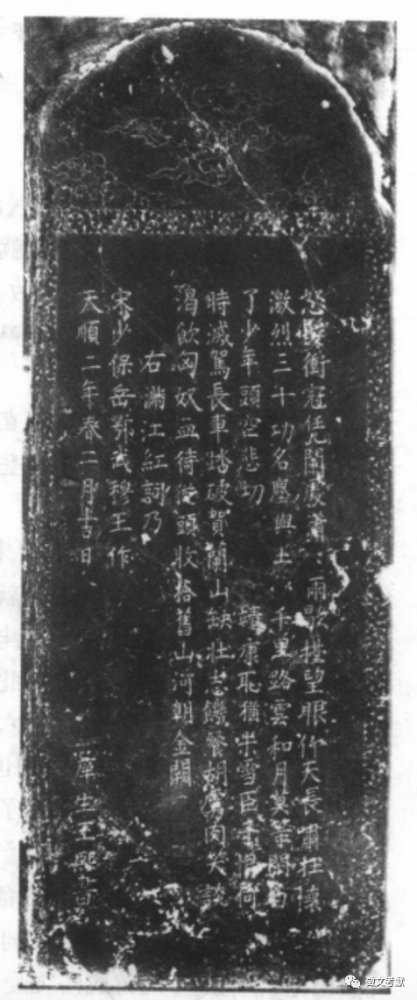 怒髮衝冠凭闌處瀟：雨歇擡望眼仰天長嘯壯懷
激烈三十功名塵與土千里路雲和月莫等閒白
了少年頭空悲切 靖康耻猶未雪臣子恨何
時滅駕長車踏破賀蘭山缺壯志饑餐胡虜肉笑談
渴飲匈奴血待從頭收拾舊山河朝金闕
右滿江紅詞乃
宋少保岳鄂武穆王作
天順二年春二月吉日 庠生王熙書